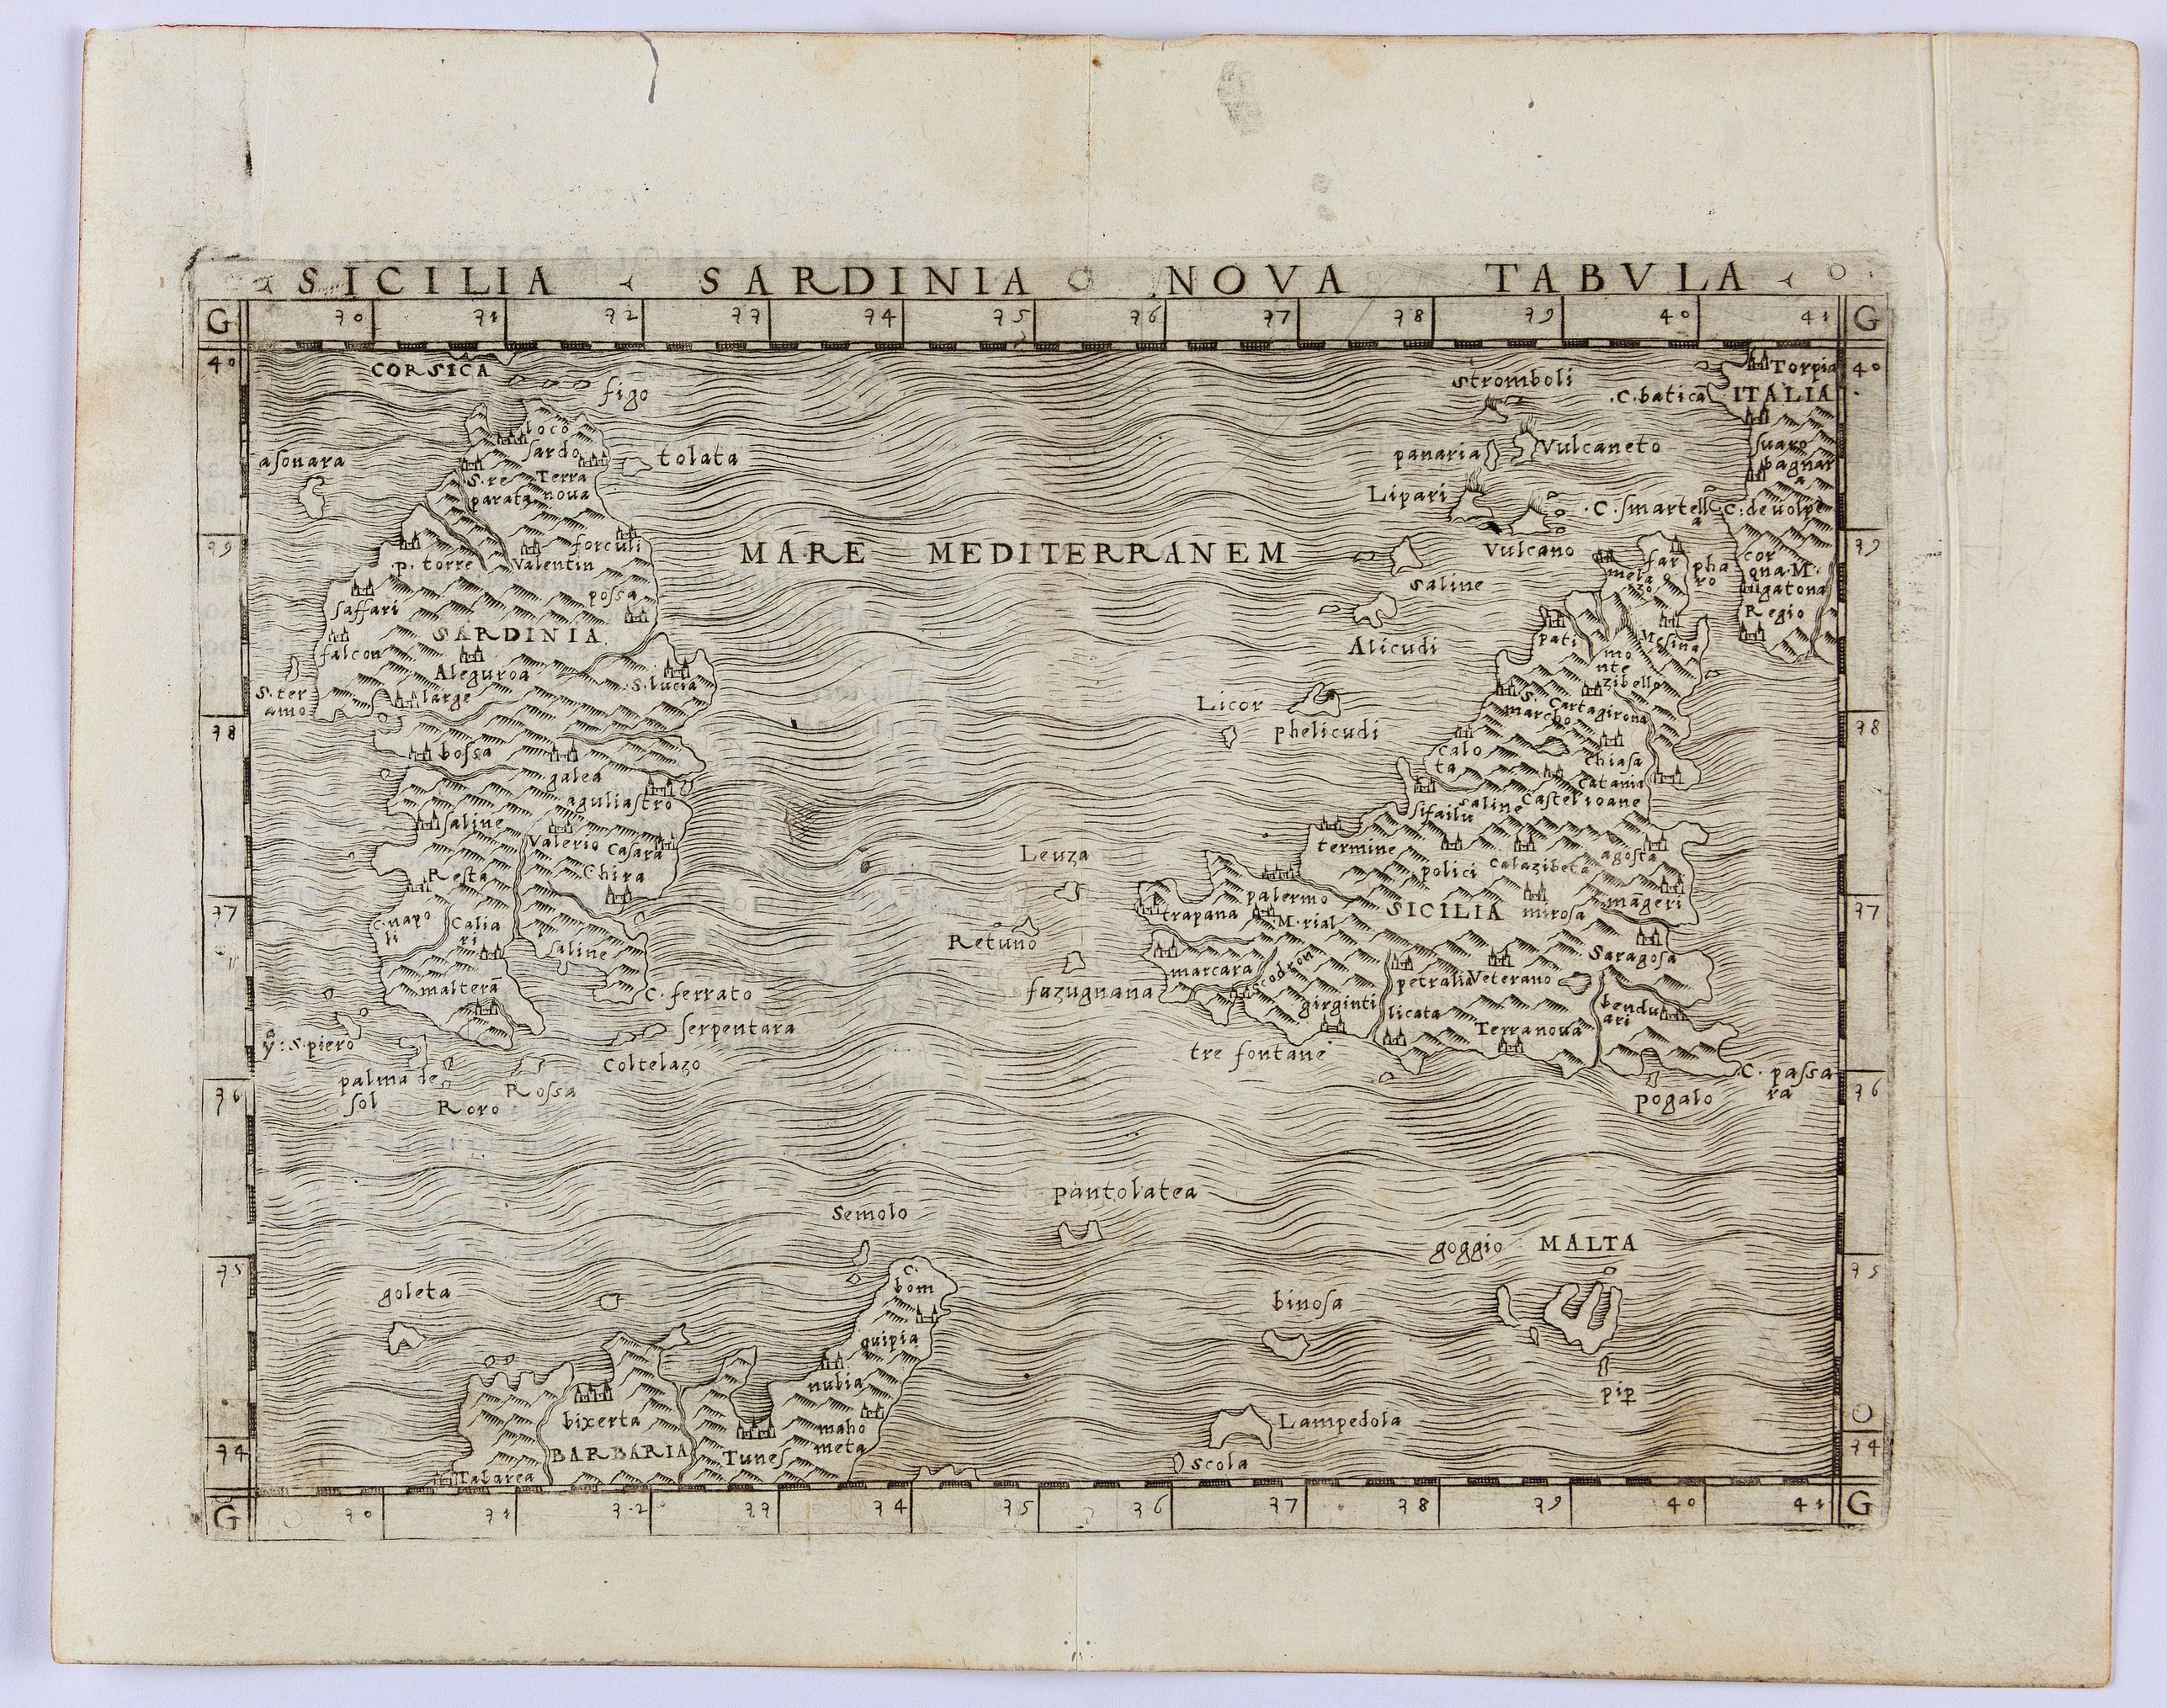 SICILIA SARDINIA NOVA TABVLA
G 30 31 32 33 34 35 36 37 38 39 40 41 G
40
39
38
37
36
35
34
40
39
38
37
36
35
34
CORSICA
figo
loco
sardo
asonara
tolata
S. re
parata
Terra
noua
forculi
p. torre
Valentin
possa
saffari
SARDINIA
falcon
Aleguroa
S. lucia
S. ter
amo
large
bossa
galea
aguliastro
saline
Valerio
Casara
Chira
Resta
C. napo
li
Calia
ri
saline
malterã
C. ferrato
serpentara
Coltelazo
ẙ: S. piero
palma de
sol
Roro
Rossa
MARE MEDITERRANEM
stromboli
C. batica
Torpia
ITALIA
suaro
bagnar
a
panaria
Vulcaneto
Lipari
C. smartell
a
C: deuolpe
Vulcano
saline
Alicudi
Licor
phelicudi
far
o
mela
zo
pha
ro
cor
ona. M.
ugatona
Regio
pati
Mesina
mo
nte
zibello
S.
marcho
Cartagirona
calo
ta
chiasa
Catania
saline
Castelioane
sifailu
termine
polici
Calazibeta
agosta
Leuza
trapana
palermo
M. rial
SICILIA
mirosa
mageri
Retuno
fazugnana
marcara
Saragosa
petralia
Veterano
girginti
licata
bendu
ari
Terranoua
tre fontane
C. passa
ra
pogalo
pantolatea
Semolo
goggio MALTA
goleta
C.
bom
quipia
binosa
nubia
bixerta
maho
meta
BARBARIA
Tunes
Tabarea
pip
Lampedola
scola
G 30 31 32 33 34 35 36 37 38 39 40 41 G